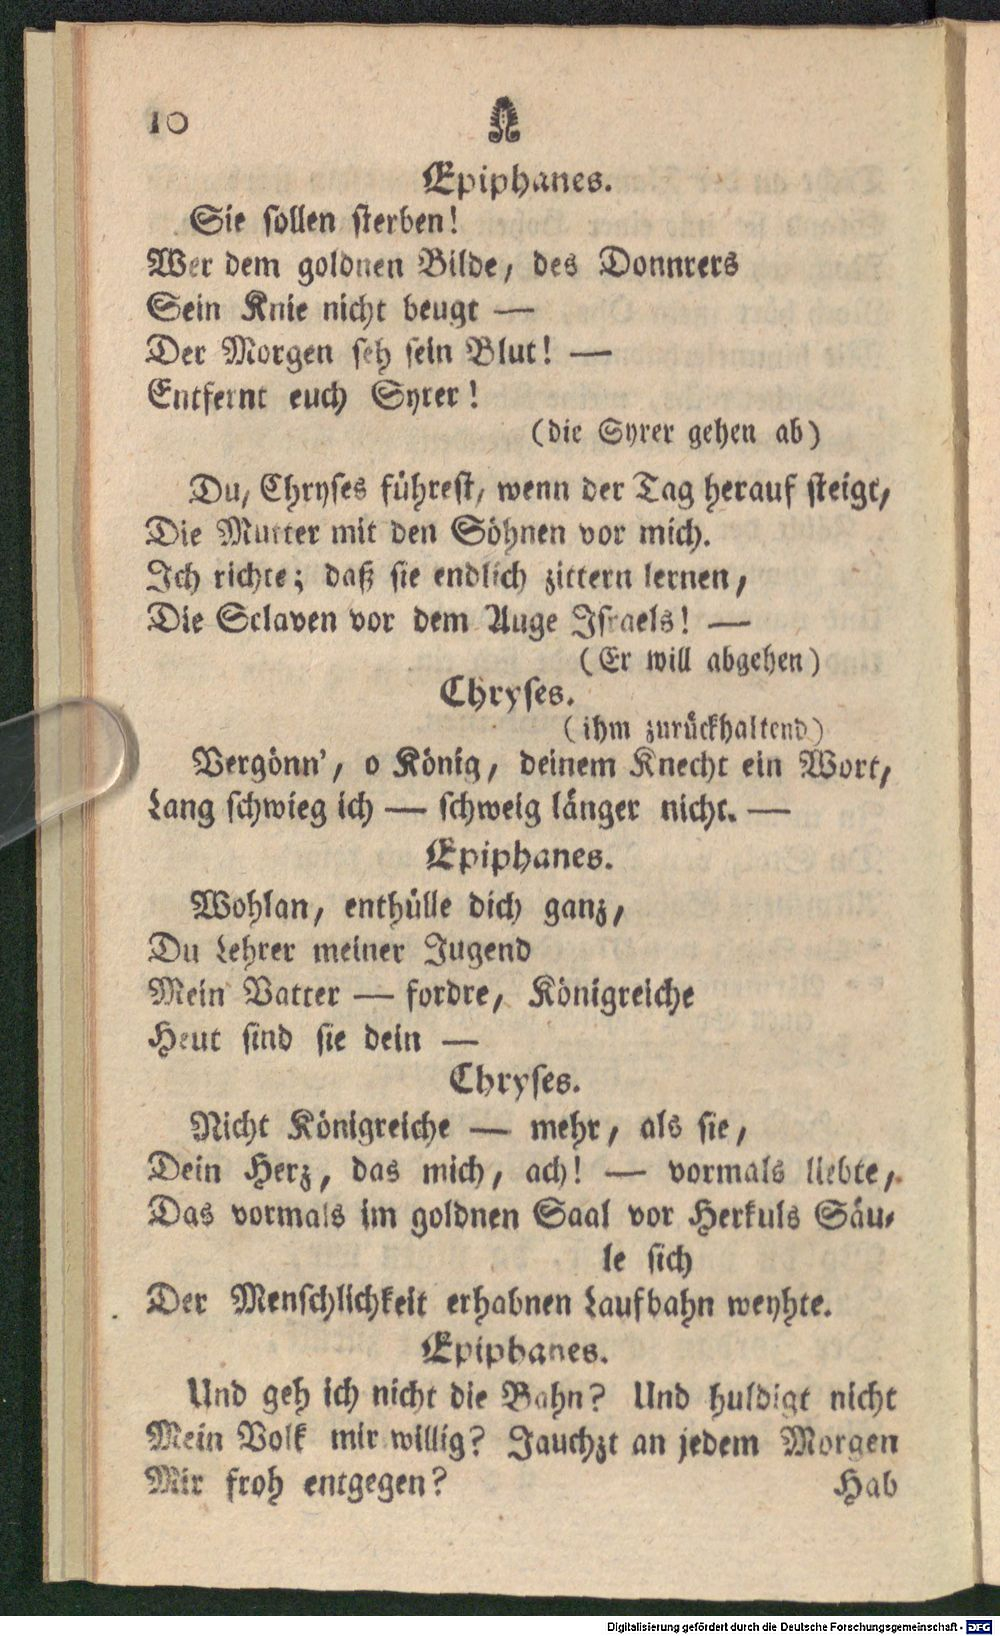 10
Epiphanes.
Sie sollen sterben!
Wer dem goldnen Bilde, des Donnrers
Sein Knie nicht beugt —
Der Morgen seh sein Blut! —
Entfernt euch Syrer!
(die Syrer gehen ab)
Du, Chryses führest, wenn der Tag herauf steigt,
Die Mutter mit den Söhnen vor mich.
Ich richte; daß sie endlich zittern lernen,
Die Sclaven vor dem Auge Israels! —
(Er will abgehen)
Chryses.
(ihm zurückhaltend)
Vergönn', o König, deinem Knecht ein Wort,
Lang schwieg ich — schweig länger nicht. —
Epiphanes.
Wohlan, enthülle dich ganz,
Du Lehrer meiner Jugend
Mein Vatter — fordre, Königreiche
Heut sind sie dein —
Chryses.
Nicht Königreiche — mehr, als sie,
Dein Herz, das mich, ach! — vormals liebte,
Das vormals im goldnen Saal vor Herkuls Säu-
le sich
Der Menschlichkeit erhabnen Laufbahn weyhte.
Epiphanes.
Und geh ich nicht die Bahn? Und huldigt nicht
Mein Volk mir willig? Jauchzt an jedem Morgen
Mir froh entgegen?
Hab
Digitalisierung gefördert durch die Deutsche Forschungsgemeinschaft - DFG